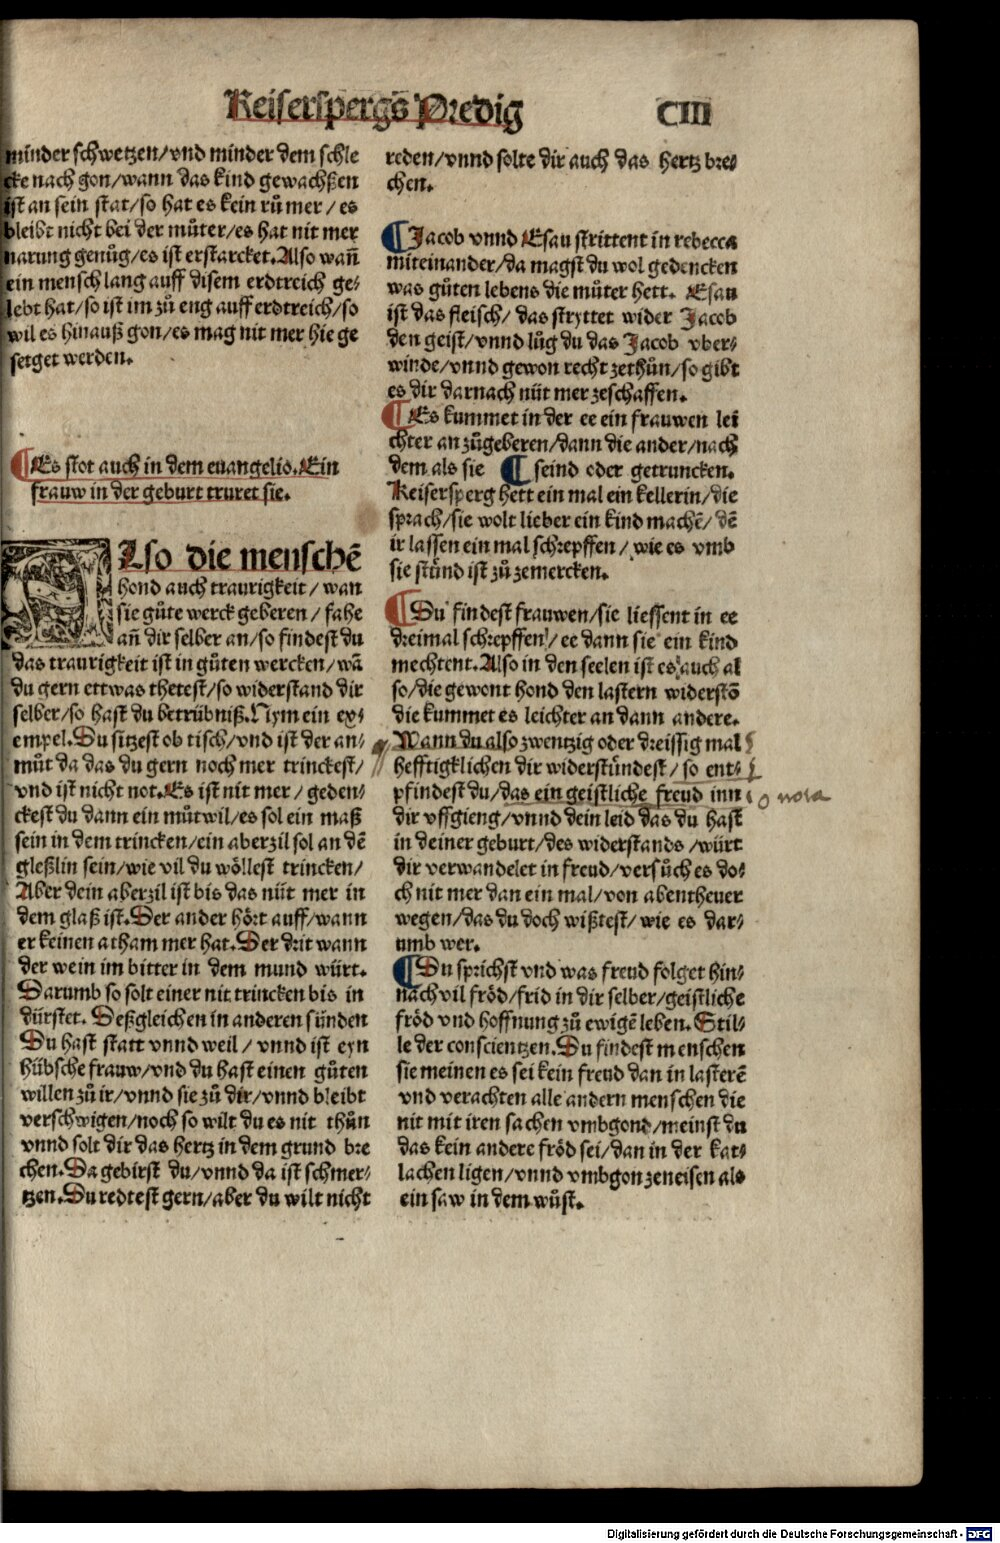 Keiserspergs Predig CIII
minder schwetzen/vnd minder dem schle
cke nach gon/wann das kind gewachßen
ist an sein stat/so hat es kein rů mer/es
bleibt nicht bei der můter/es hat nit mer
narung genůg/es ist erstarcket. Also wañ
ein mensch lang auff disem erdtreich ge-
lebt hat/so ist im zů eng auff erdtreich/so
wil es hinauß gon/es mag nit mer hie ge
setget werden.
¶ Es stot auch in dem euangelio. Ein
frauw in der geburt truret sie.
Also die menschē
hond auch traurigkeit/wan
sie gůte werck geberen/fahe
añ dir selber an/so findest du
das traurigkeit ist in gůten wercken/wā
du gern ettwas thetest/so widerstand dir
selber/so hast du betrübniß. Nym ein ex-
empel. Du sitzest ob tisch/vnd ist der an-
můt da das du gern noch mer trinckest/
vnd ist nicht not. Es ist nit mer/geden-
ckest du dann ein můtwil/es sol ein maß
sein in dem trincken/ein aberzil sol an dē
gleßlin sein/wie vil du wöllest trincken/
Aber dein aberzil ist bis das nüt mer in
dem glaß ist. Der ander hört auff/wann
er keinen atham mer hat. Der drit wann
der wein im bitter in dem mund würt.
Darumb so solt einer nit trincken bis in
dürstet. Deßgleichen in anderen sünden
Du hast statt vnnd weil/vnnd ist eyn
hübsche frauw/vnd du hast einen gůten
willen zů ir/vnnd sie zů dir/vnnd bleibt
verschwigen/noch so wilt du es nit thůn
vnnd solt dir das hertz in dem grund bre
chen. Da gebirst du/vnnd da ist schmer-
tzen. Du redtest gern/aber du wilt nicht
reden/vnnd solte dir auch das hertz bre-
chen.
¶ Jacob vnnd Esau strittent in rebecca
miteinander/da magst du wol gedencken
was gůten lebens die můter hett. Esau
ist das fleisch/das stryttet wider Jacob
den geist/vnnd lůg du das Jacob vber-
winde/vnnd gewon recht zethůn/so gibt
es dir darnach nüt mer zeschaffen.
¶ Es kummet in der ee ein frauwen lei
chter an zůgeberen/dann die ander/nach
dem als sie ¶ seind oder getruncken.
Keisersperg hett ein mal ein kellerin/die
sprach/sie wolt lieber ein kind machē/dē
ir lassen ein mal schrepffen/wie es vmb
sie stünd ist zů zemercken.
¶ Du findest frauwen/sie liessent in ee
dreimal schrepffen/ee dann sie ein kind
mechtent. Also in den seelen ist es auch al
so/die gewont hond den lastern widerstō
die kummet es leichter an dann andere.
Wann du also zwentzig oder dreissig mal
hefftigklichen dir widerstündest/so ent-
pfindest du/das ein geistliche freud inn
dir vffgieng/vnnd dein leid das du hast
in deiner geburt/des widerstands/würt
dir verwandelet in freud/versůch es do-
ch nit mer dan ein mal/von abentheuer
wegen/das du doch wißtest/wie es dar-
umb wer.
¶ Du sprichst vnd was freud folget hin-
nach vil fröd/frid in dir selber/geistliche
fröd vnd hoffnung zů ewigē leben. Stil-
le der conscientzen. Du findest menschen
sie meinen es sei kein freud dan in lasterē
vnd verachten alle andern menschen die
nit mit iren sachen vmbgond/meinst du
das kein andere fröd sei/dan in der kat-
lachen ligen/vnnd vmbgon zeneisen als
ein saw in dem wůst.
Digitalisierung gefördert durch die Deutsche Forschungsgemeinschaft - DFG